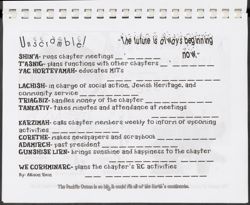 Unscramble!
-The future is always beginning now.-
SHIN'A- runs chapter meetings
TASNIG- plans functions with other chapters
YAG HORTEVAMAH- educates MITs
LACHISH- in charge of social action, Jewish Heritage, and
community service
TRIAGBIZ- handles money of the chapter
TANKATIY- takes minutes and attendance at meetings
KARZIMAH- calls chapter members weekly to inform of upcoming
activities
CORETHE- makes newspapers and scrapbook
ADAMIRCH- past president
GUNSHISE LIRN- brings sunshine and happiness to the chapter
WE CORHMINARC- plans the chapter's RC activities
By: Allison
The Pacific Ocean is so big, it could fit all of the Earth's continents.